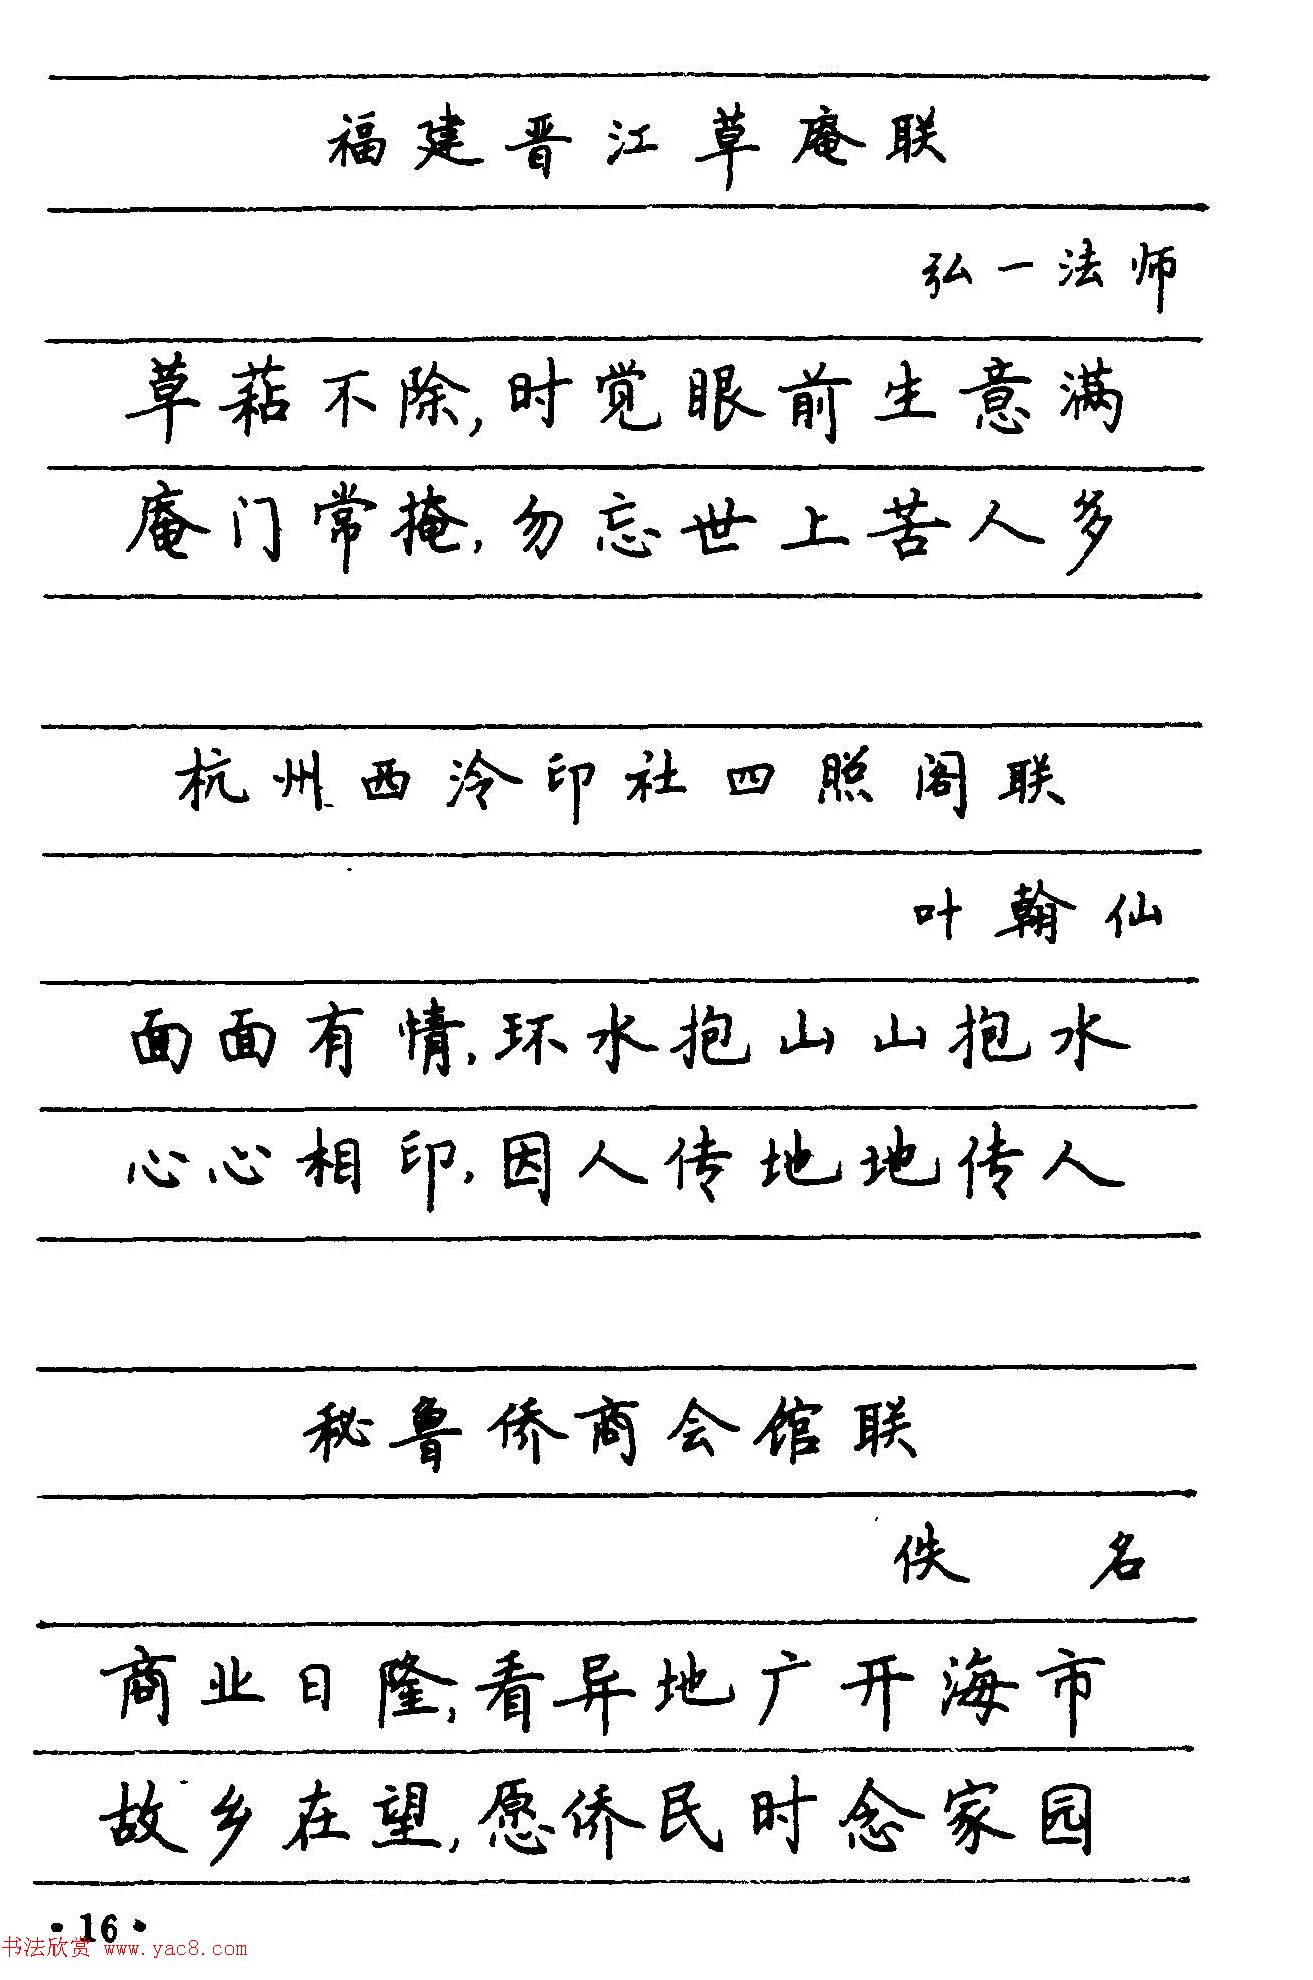 福建晋江草庵联
弘一法师
草萜不除,时觉眼前生意满
庵门常掩,勿忘世上苦人多
杭州西泠印社四照阁联
叶翰仙
面面有情,环水抱山山抱水
心心相印,因人传地地传人
秘鲁侨商会馆联
佚名
商业日隆,看异地广开海市
故乡在望,愿侨民时念家园
·16·
书法欣赏 www.yac8.com